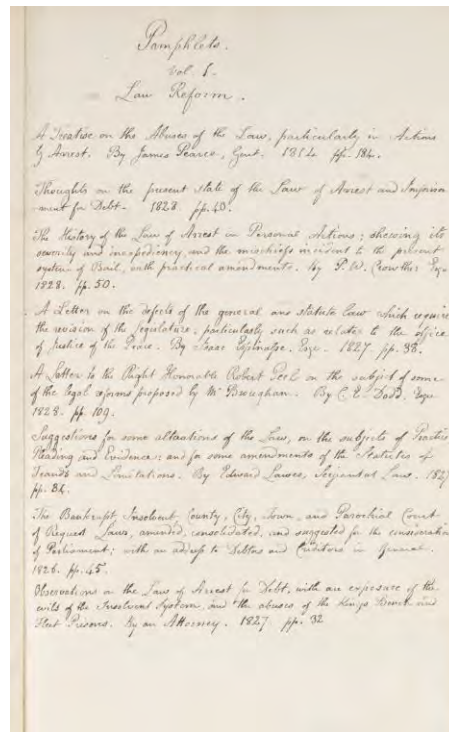 Pamphlets.
Vol. 1.
Law Reform.
A Treatise on the Abuses of the Law, particularly in Actions
by Arrest. By James Pearce, Gent. 1814 pp. 184.
Thoughts on the present state of the Law of Arrest and Imprison
-ment for Debt - 1828. pp. 40.
The History of the Law of Arrest in Personal Actions; shewing its
severity and inexpediency, and the mischiefs incident to the present
system of Bail, with practical amendments. By P. W. Crowther Esqr.
1828. pp. 50.
A Letter on the defects of the general and statute law which require
the revision of the legislature, particularly such as relates to the office
of Justice of the Peace. By Isaac Espinasse. Esqr. 1827 pp. 38.
A Letter to the Right Honorable Robert Peel on the subject of some
of the legal reforms proposed by Mr Brougham. By C. E. Dodd. Esqr.
1828. pp. 109.
Suggestions for some alterations of the Law, on the subjects of Practice
Pleading and Evidence; and for some amendments of the Statutes of
Frauds and Limitations. By Edward Lawes, Serjeant at Law. 1827
pp. 84.
The Bankrupt, Insolvent, County, City, Town, and Parochial Court
of Request Laws, amended, consolidated, and suggested for the consideration
of Parliament; with an address to Debtors and Creditors in General.
1826. pp. 45.
Observations on the Law of Arrest for Debt, with an exposure of the
evils of the Insolvent System, and the abuses of the Kings Bench and
Fleet Prisons. By an Attorney. 1827 pp. 32